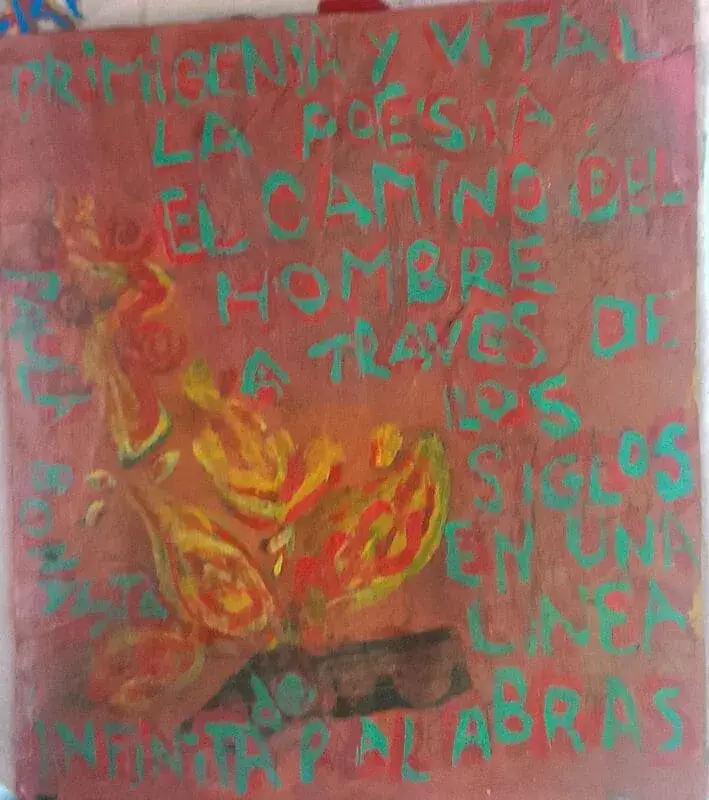 PRIMIGENIA Y VITAL
LA POESIA.
EL CAMINO DEL
HOMBRE
A TRAVES DE
LOS
SIGLOS
EN UNA
LINEA
de
INFINITA PALABRAS